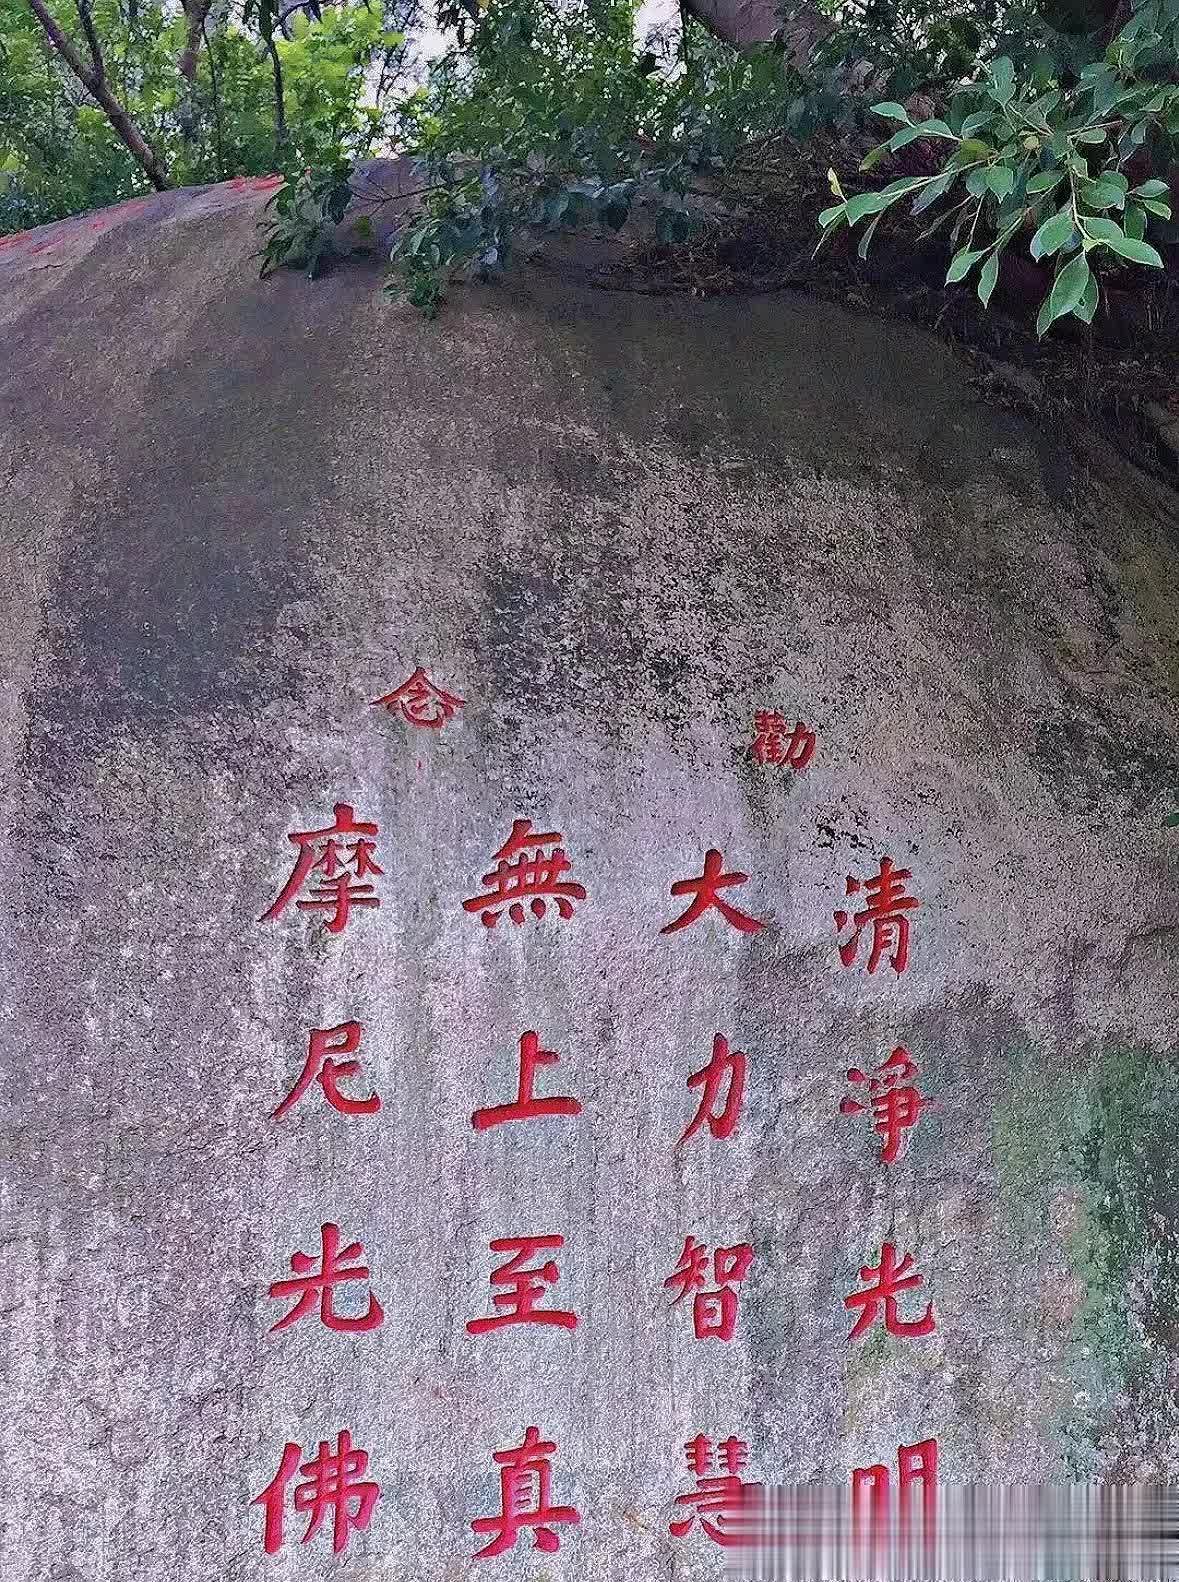 勸
念
清凈光明
大力智慧
無上至真
摩尼光佛